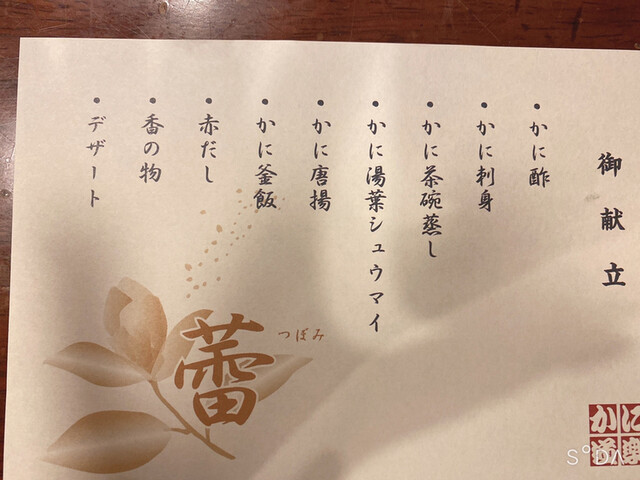 御献立
・かに酢
・かに刺身
・かに茶碗蒸し
・かに湯葉シュウマイ
・かに唐揚
・かに釜飯
・赤だし
・香の物
・デザート
蕾
つぼみ
かに
道楽